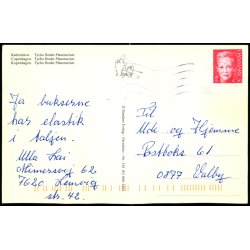 København: Tycho Brahe Planetarium
Copenhagen: Tycho Brahe Planetarium
Kopenhagen: Tycho Brahe Planetarium
Ja bukserne
har elastik
i taljen.
Ulla Kai
Mimersvej 62
7620 Lemvig
str. 42.
Til
Ude og Hjemme
Postboks 61
0877 Valby